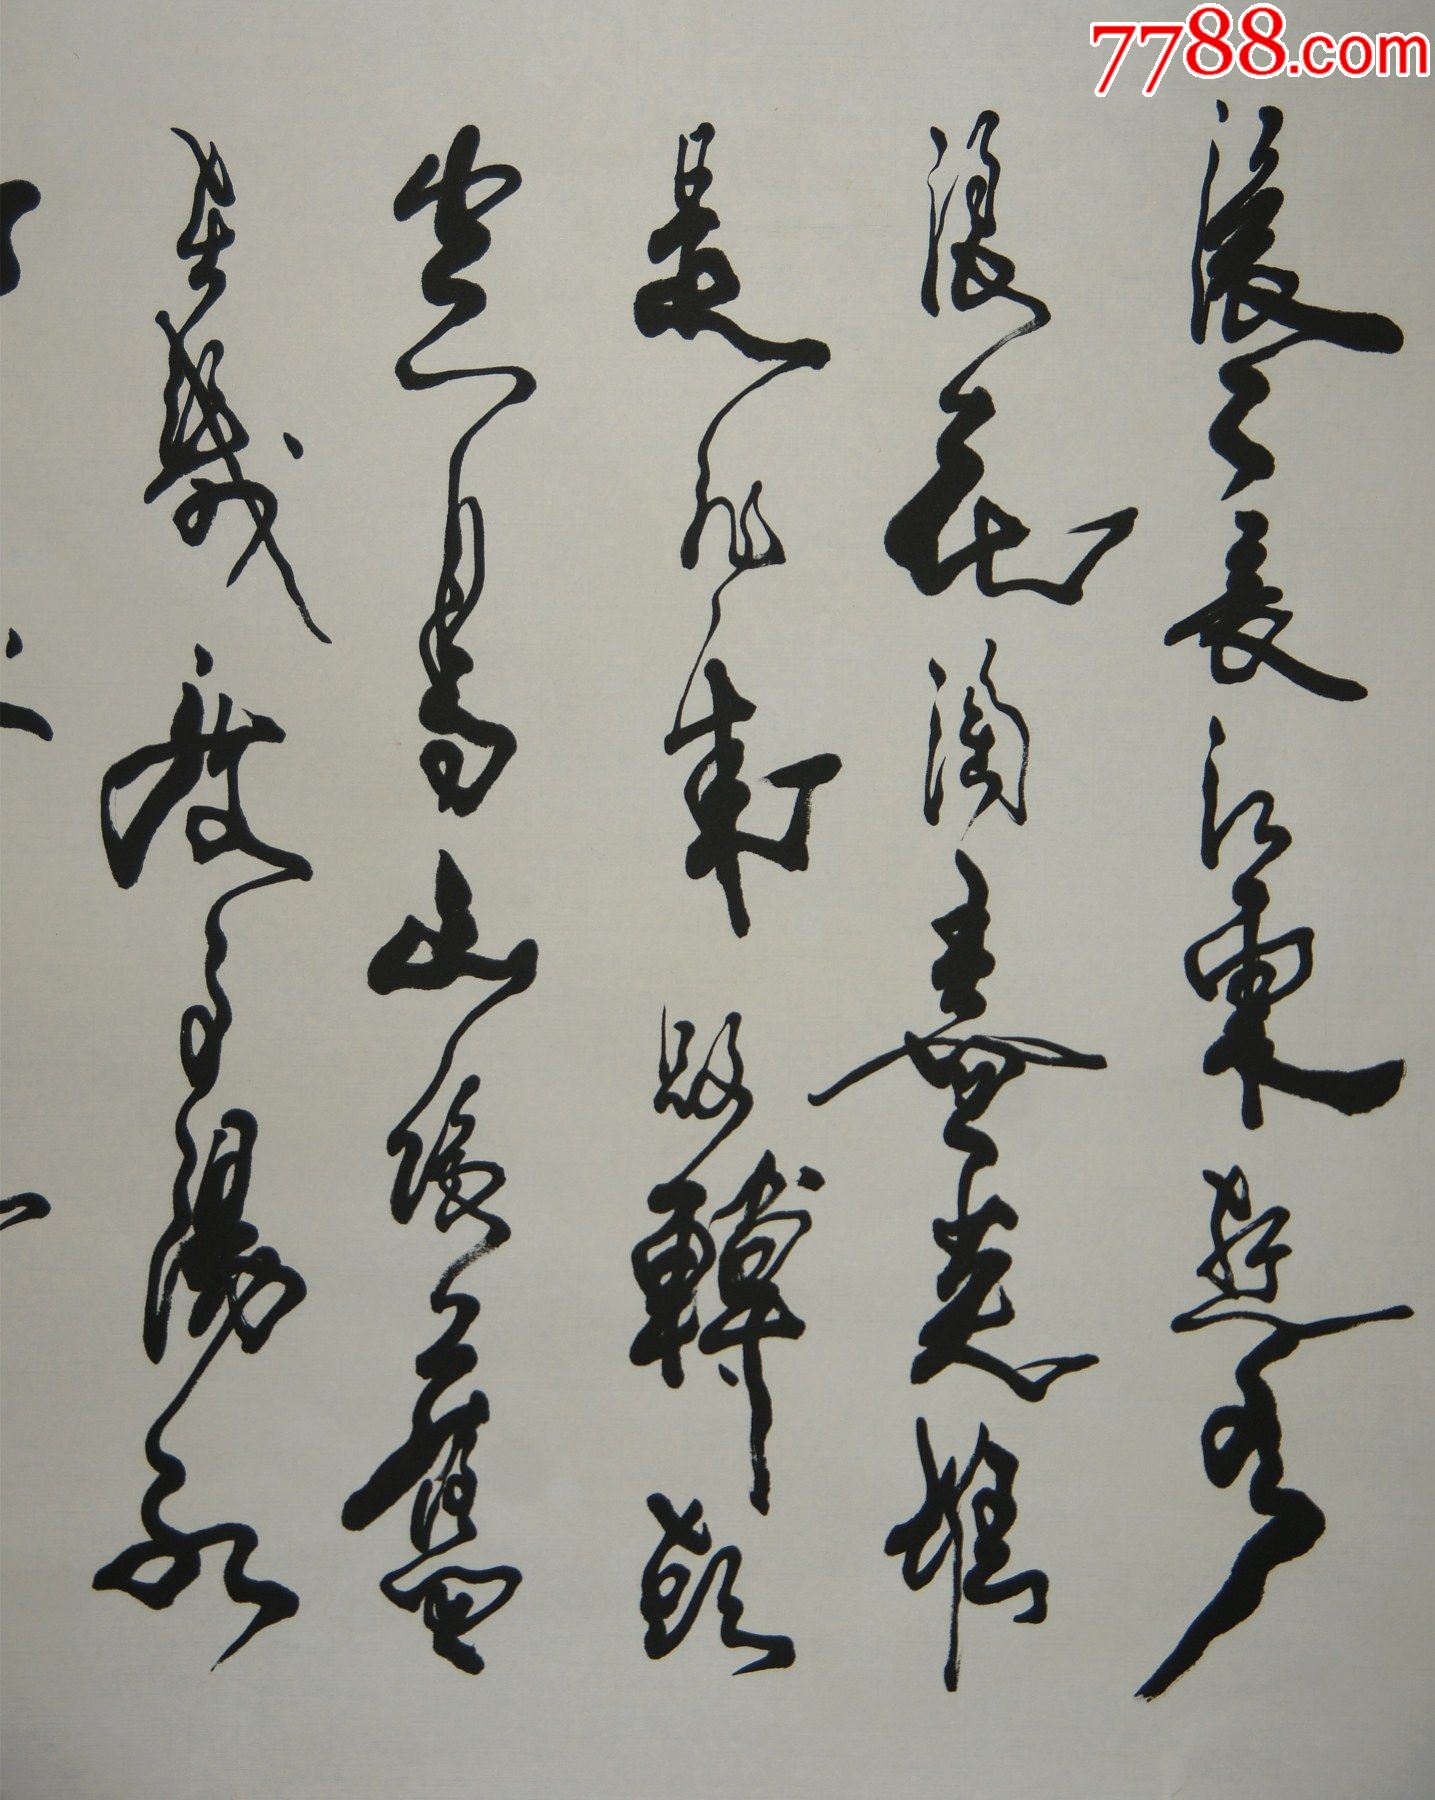 7788.com
滚滚长江东逝水
浪花淘尽英雄
是非成败转头
空青山依旧
在几度夕阳红